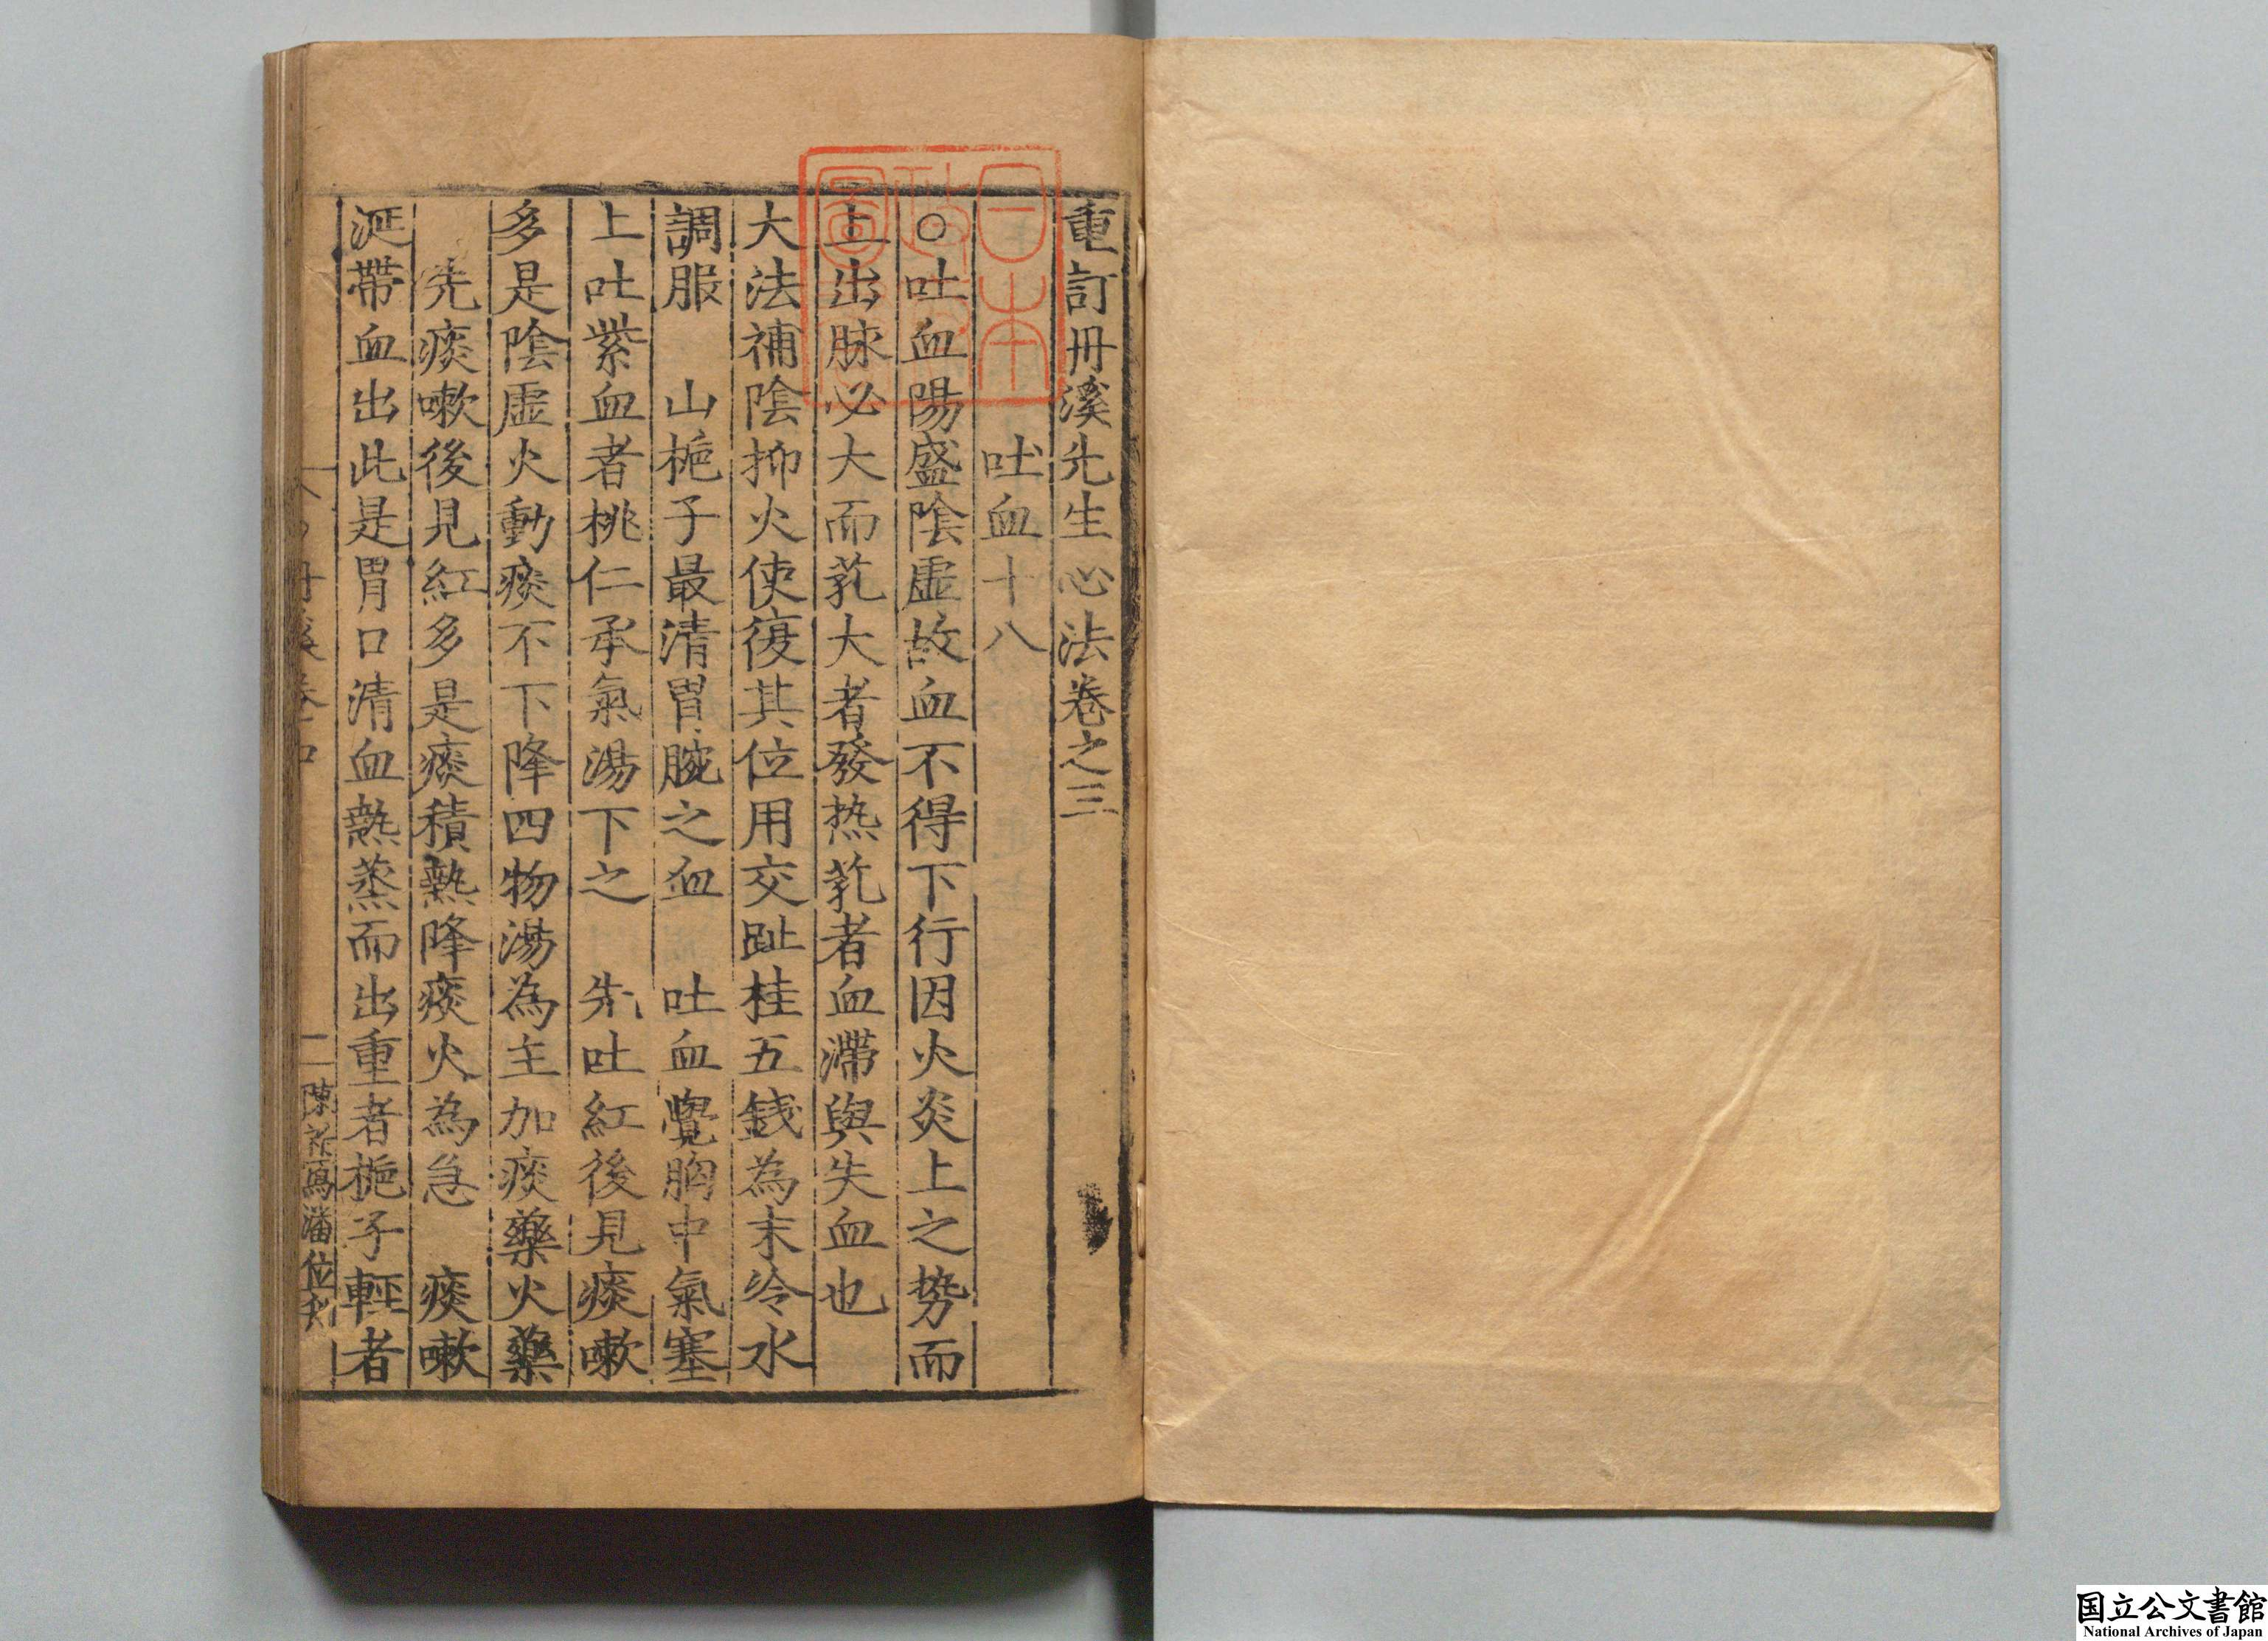 重訂丹溪先生心法卷之三
吐血十八
○吐血陽盛陰虛故血不得下行因火炎上之势而
上出脉必大而芤大者發热芤者血滯與失血也
大法補陰抑火使復其位用交趾桂五錢為末冷水
調服　山梔子最清胃脘之血　吐血覺胸中氣塞
上吐紫血者桃仁承氣湯下之　先吐紅後見痰嗽
多是陰虛火動痰不下降四物湯為主加痰藥火藥
先痰嗽後見紅多是痰積熱降痰火為急　痰嗽
涎帶血出此是胃口清血熱蒸而出重者梔子輕者
二
日本
圖
国立公文書館
National Archives of Japan